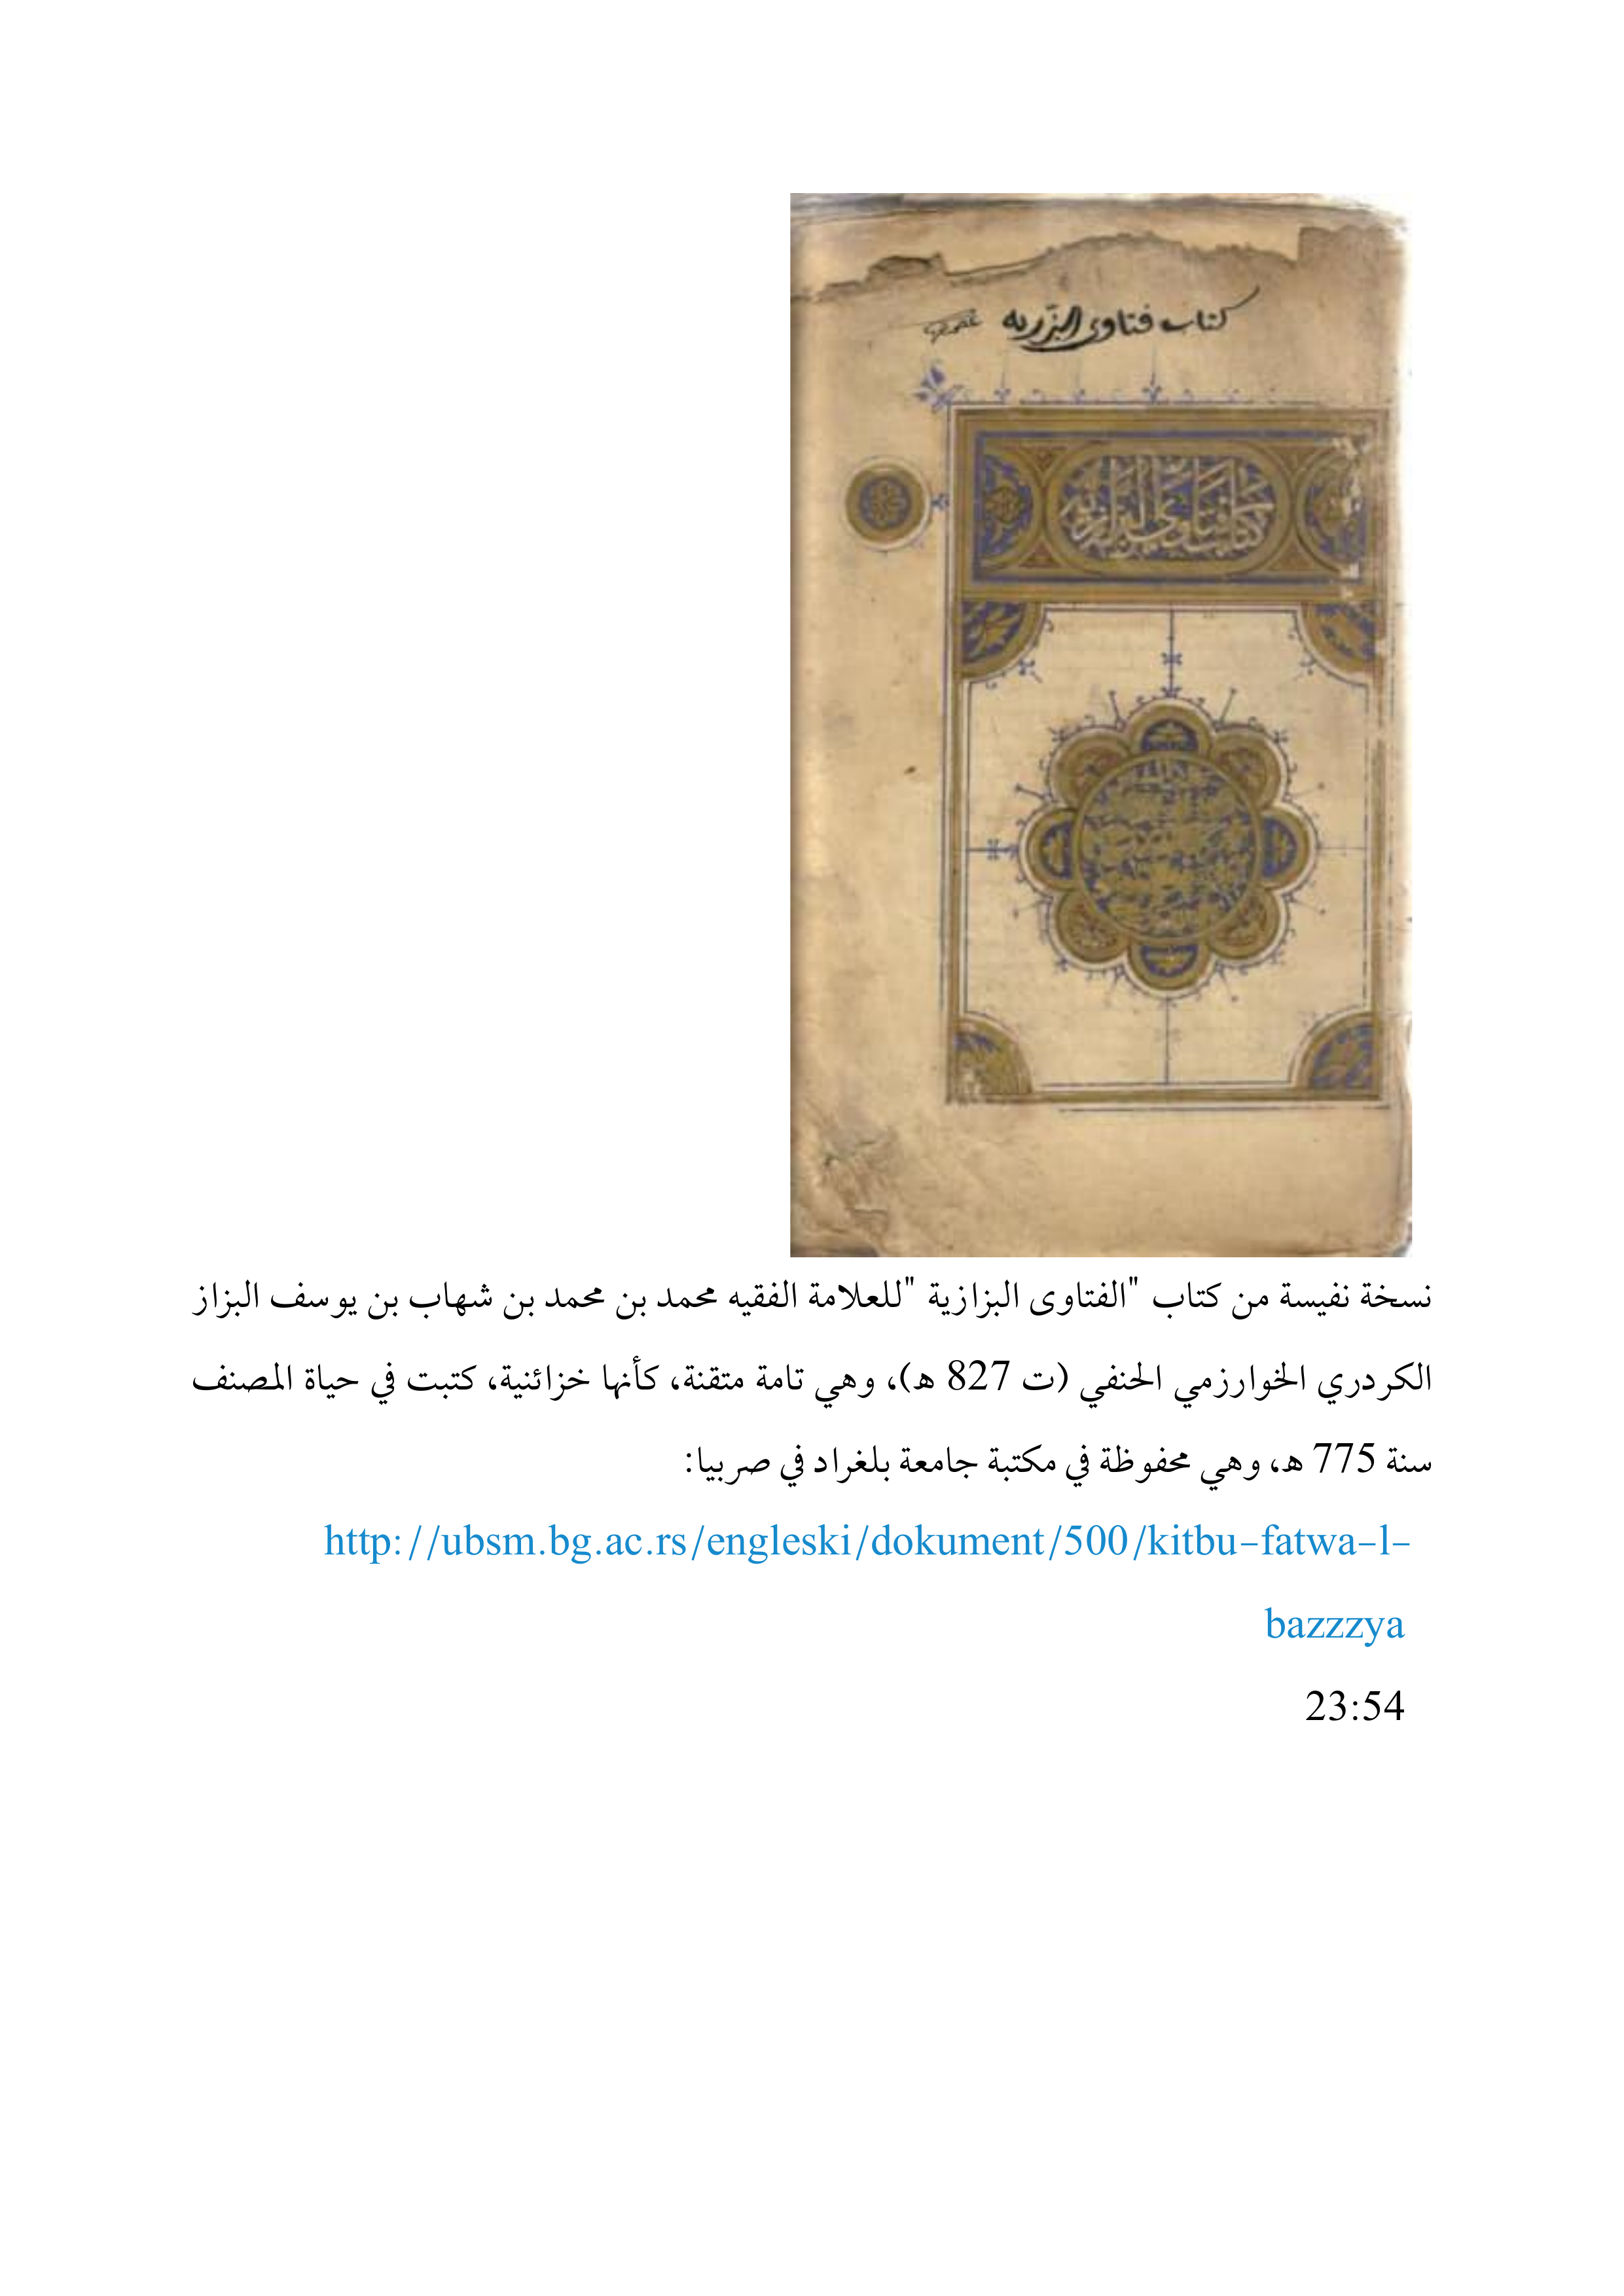 كتاب فتاوى البزريه
كتاب فتاوى البزازيه
نسخة نفيسة من كتاب "الفتاوى البزازية "للعلامة الفقيه محمد بن محمد بن شهاب بن يوسف البزاز
الكردري الخوارزمي الحنفي (ت 827 ه)، وهي تامة متقنة، كأنها خزائنية، كتبت في حياة المصنف
سنة 775 ه، وهي محفوظة في مكتبة جامعة بلغراد في صربيا:
http://ubsm.bg.ac.rs/engleski/dokument/500/kitbu-fatwa-l-
bazzzya
23:54